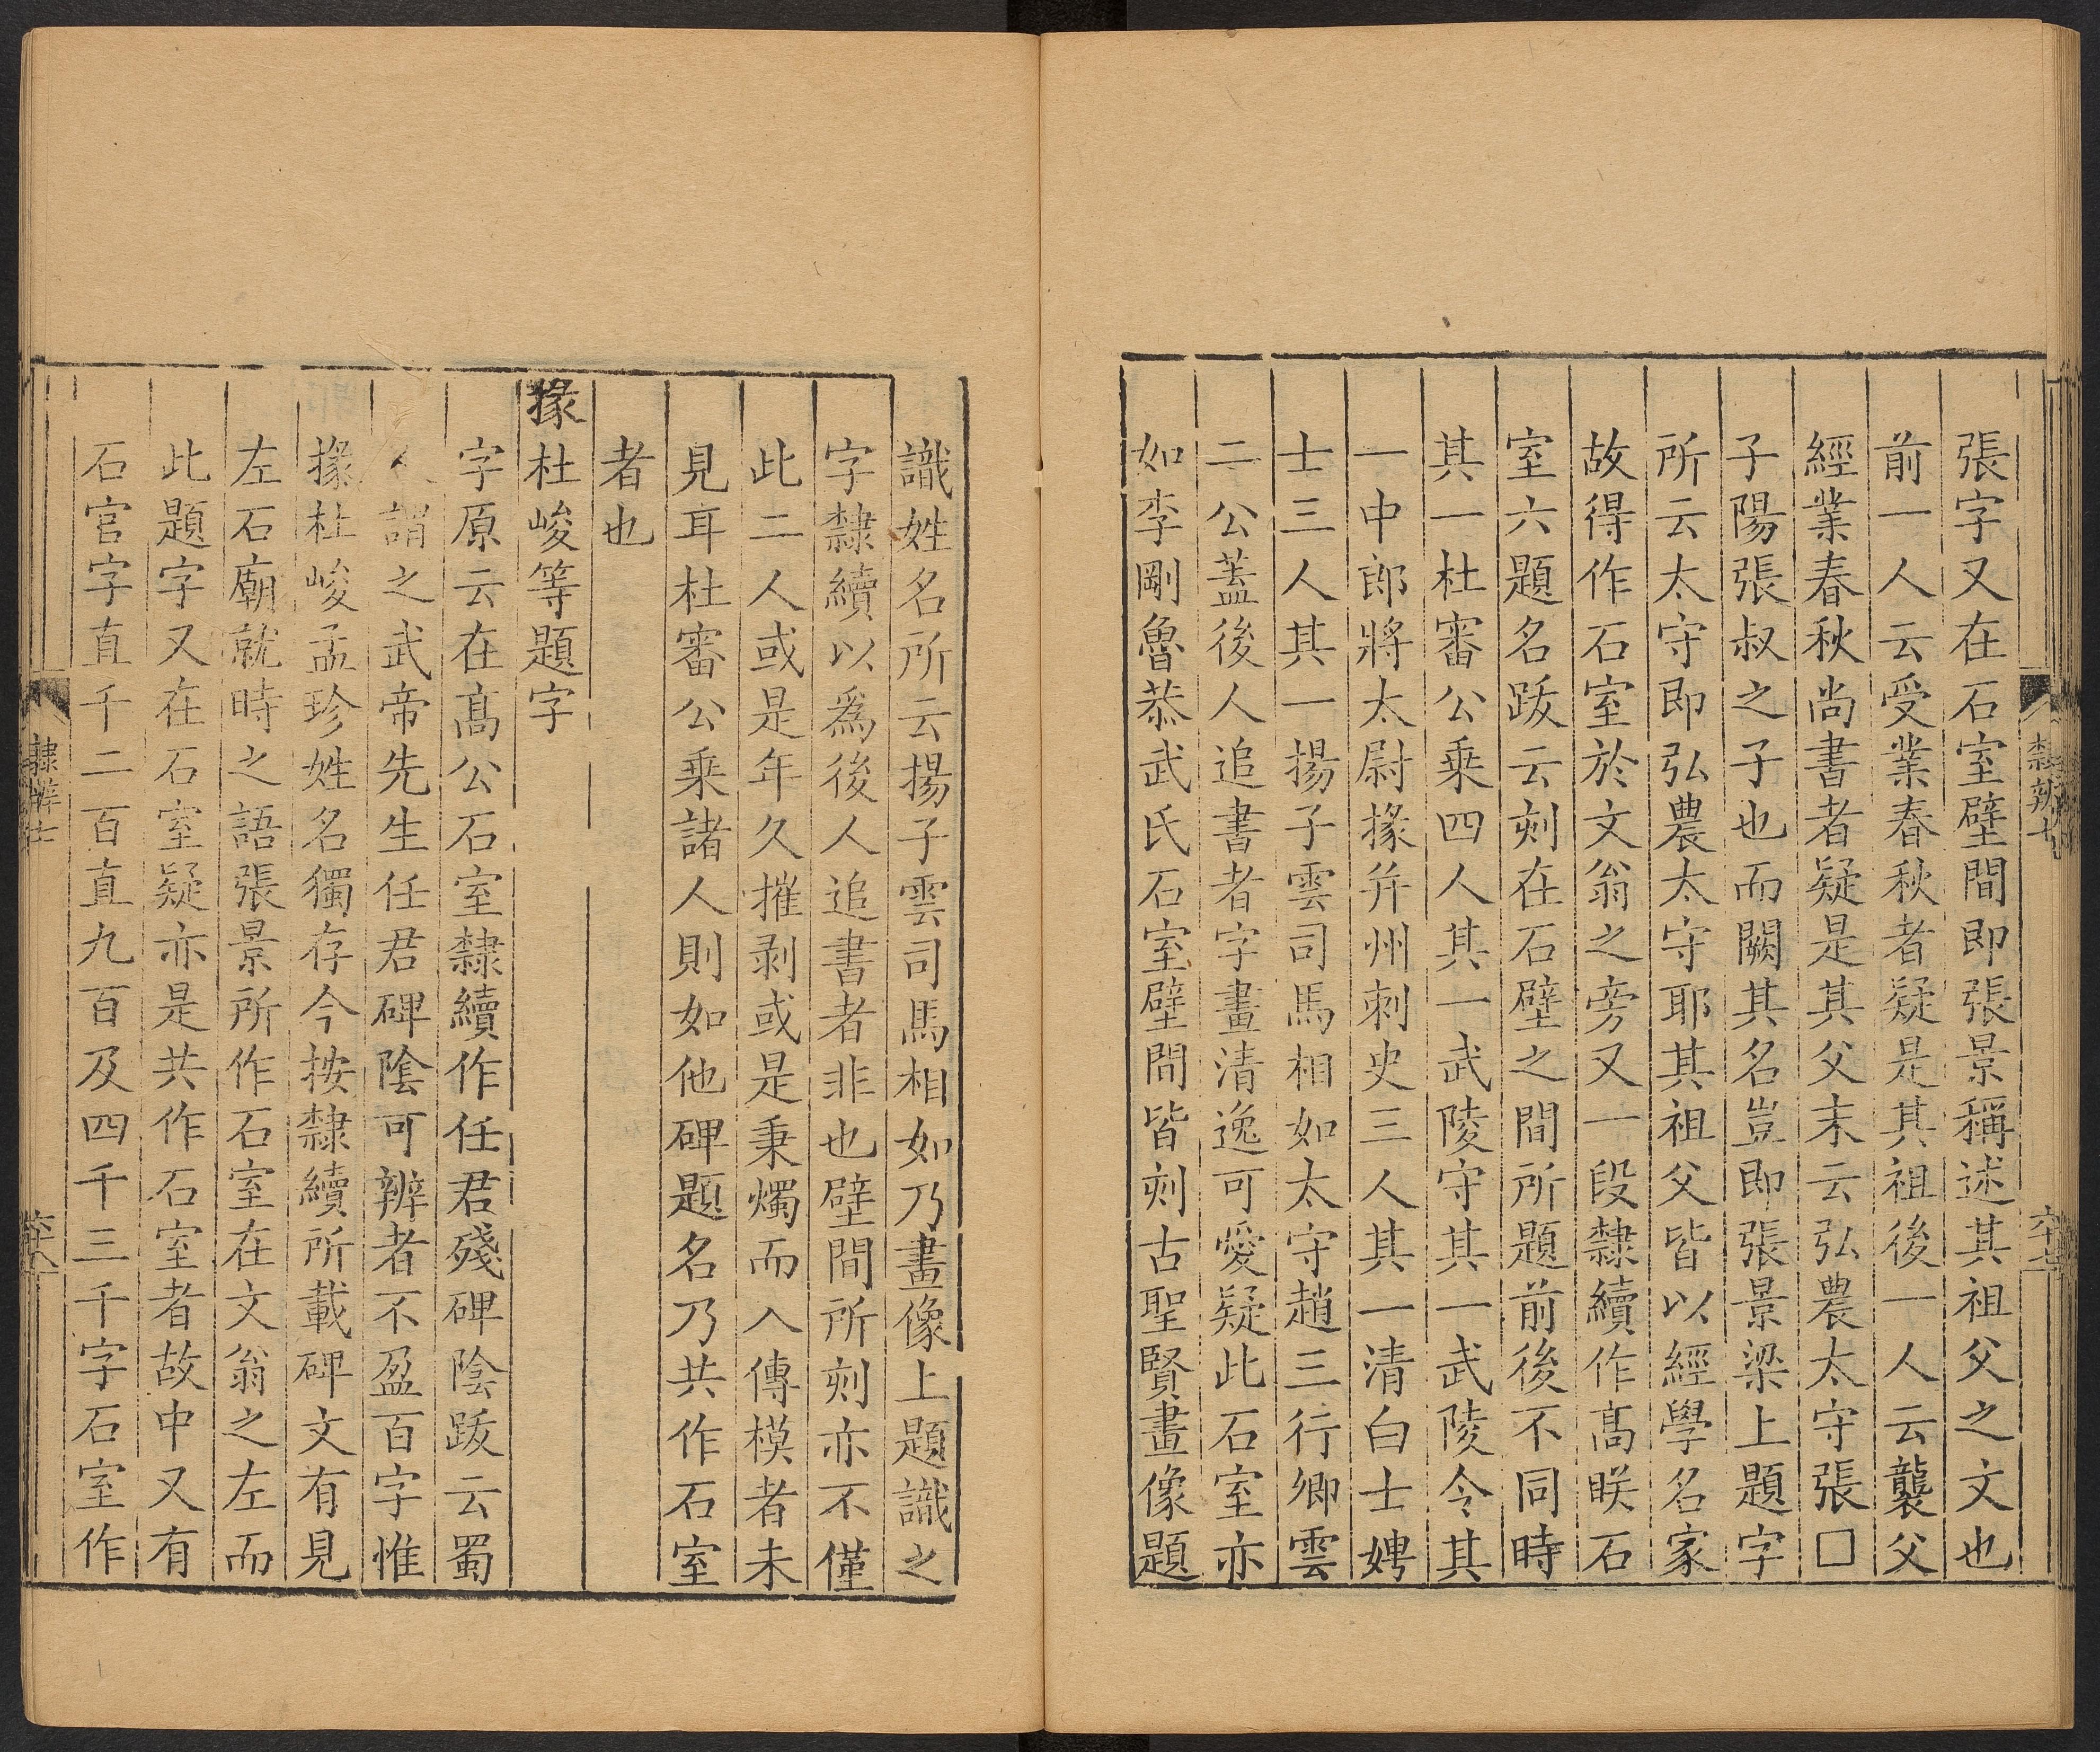 張字又在石室壁間即張景稱述其祖父之文也
前一人云受業春秋者疑是其祖後一人云襲父
經業春秋尚書者疑是其父末云弘農太守張□
子陽張叔之子也而闕其名豈即張景梁上題字
所云太守即弘農太守耶其祖父皆以經學名家
故得作石室於文翁之旁又一段隸續作高眹石
室六題名跋云刻在石壁之間所題前後不同時
其一杜審公乗四人其一武陵守其一武陵令其
一中郎將太尉掾并州刺史三人其一清白士娉
士三人其一揚子雲司馬相如太守趙三行卿雲
二公蓋後人追書者字畫清逸可愛疑此石室亦
如李剛魯恭武氏石室壁間皆刻古聖賢畫像題
識姓名所云揚子雲司馬相如乃畫像上題識之
字隸續以爲後人追書者非也壁間所刻亦不僅
此二人或是年久摧剥或是秉燭而入傳模者未
見耳杜審公乗諸人則如他碑題名乃共作石室
者也
掾杜峻等題字
字原云在高公石室隸續作任君殘碑陰跋云蜀
人謂之武帝先生任君碑陰可辨者不盈百字惟
掾杜峻孟珍姓名獨存今按隸續所載碑文有見
左石廟就時之語張景所作石室在文翁之左而
此題字又在石室疑亦是共作石室者故中又有
石官字直千二百直九百及四千三千字石室作
隸辨七
隸辨七